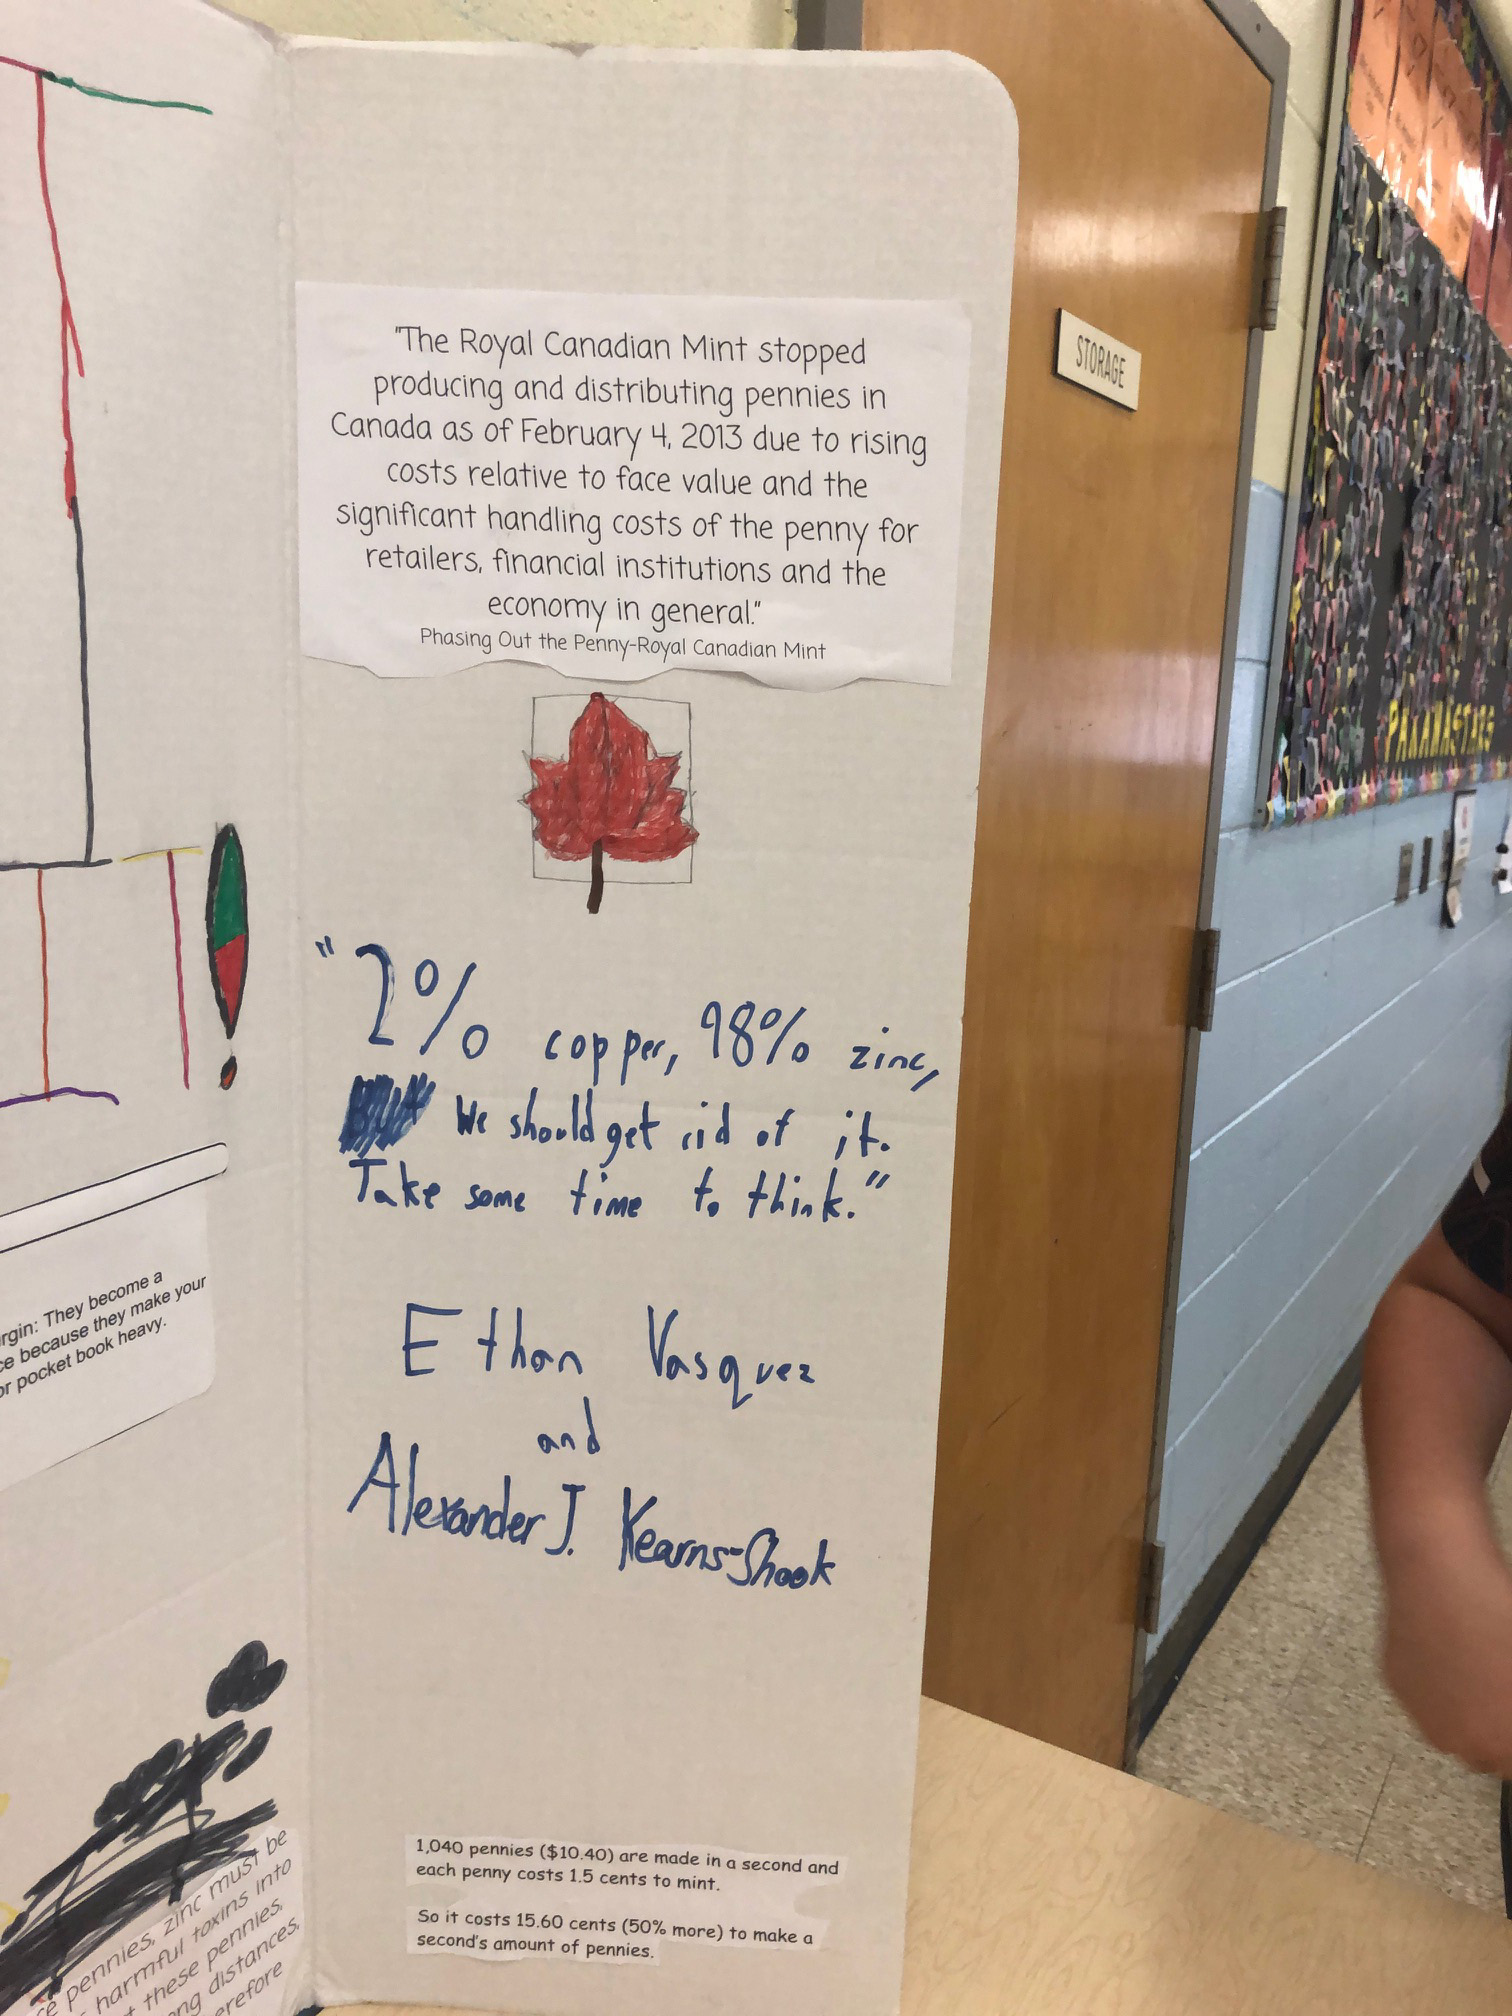 "The Royal Canadian Mint stopped
producing and distributing pennies in
Canada as of February 4, 2013 due to rising
costs relative to face value and the
significant handling costs of the penny for
retailers, financial institutions and the
economy in general."
Phasing Out the Penny-Royal Canadian Mint
"2% copper, 98% zinc,
We should get rid of it.
Take some time to think."
Ethan Vasquez
and
Alexander J. Kearns-Shook
1,040 pennies ($10.40) are made in a second and
each penny costs 1.5 cents to mint.
So it costs 15.60 cents (50% more) to make a
second's amount of pennies.
They become a
because they make your
pocket book heavy.
pennies, zinc must be
harmful toxins into
these pennies,
distances,
STORAGE